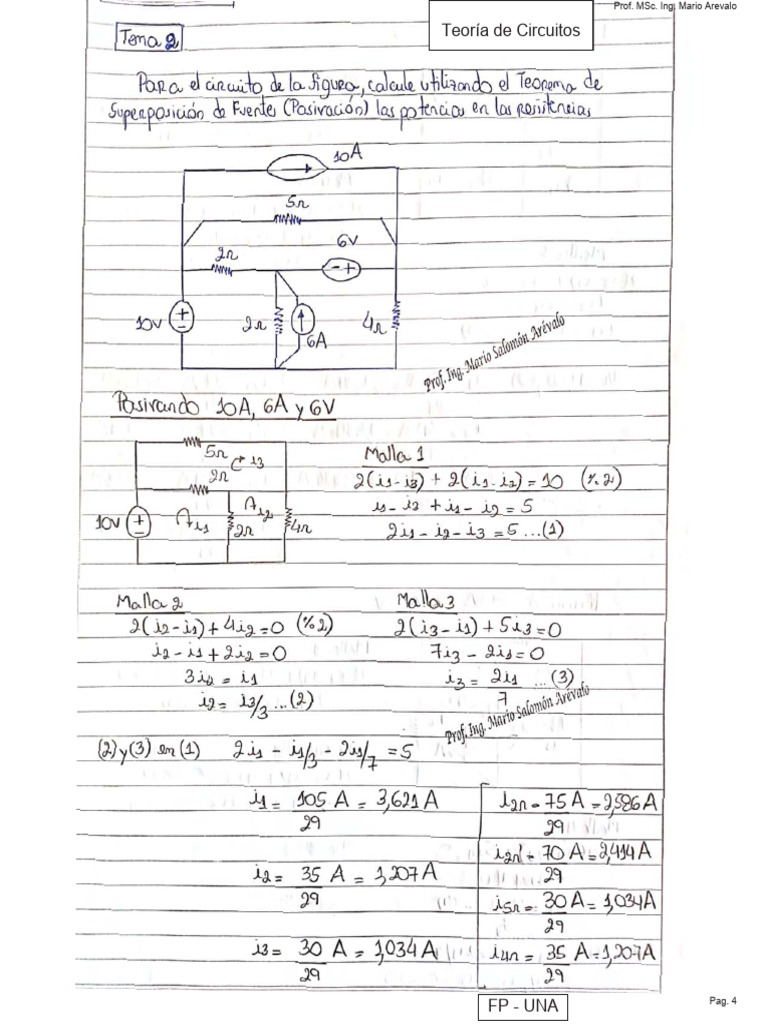 Prof. MSc. Ing. Mario Arevalo
Teoría de Circuitos
Tema 2
Para el circuito de la figura, calcule utilizando el Teorema de
Superposición de Fuentes (Pasivación) las potencias en las resistencias
10A
5Ω
6V
2Ω
10V
2Ω
6A
4Ω
Prof. Ing. Mario Salomón Arévalo
Pasivando 10A, 6A y 6V
5Ω
i3
2Ω
10V
i1
2Ω
i2
4Ω
Malla 1
2(i1-i3) + 2(i1-i2) = 10 (%2)
i1 - i3 + i1 - i2 = 5
2i1 - i2 - i3 = 5 ...(1)
Malla 2
2(i2-i1) + 4i2 = 0 (%2)
i2 - i1 + 2i2 = 0
3i2 = i1
i2 = i3/3 ...(2)
Malla 3
2(i3 - i1) + 5i3 = 0
7i3 - 2i1 = 0
i3 = 2i1/7 ...(3)
Prof. Ing. Mario Salomón Arévalo
(2) y (3) en (1) 2i1 - i1/3 - 2i1/7 = 5
i1 = 105/29 A = 3,621A
i2 = 35/29 A = 1,207A
i3 = 30/29 A = 1,034A
i2Ω = 75/29 A = 2,586A
i2Ω' = 70/29 A = 2,414A
i5Ω = 30/29 A = 1,034A
i4Ω = 35/29 A = 1,207A
FP - UNA
Pag. 4